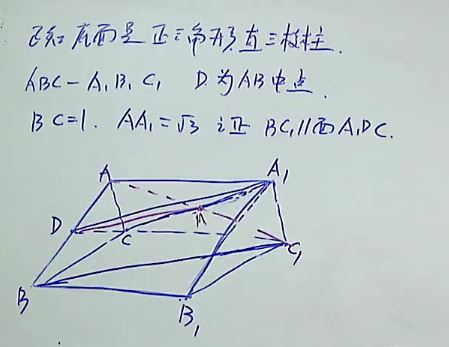 已知底面是正三角形直三棱柱.
ABC-A₁B₁C₁ D为AB中点
BC=1. AA₁=√3 求证 BC₁//面A₁DC.
A
A₁
D
C
M
C₁
B
B₁